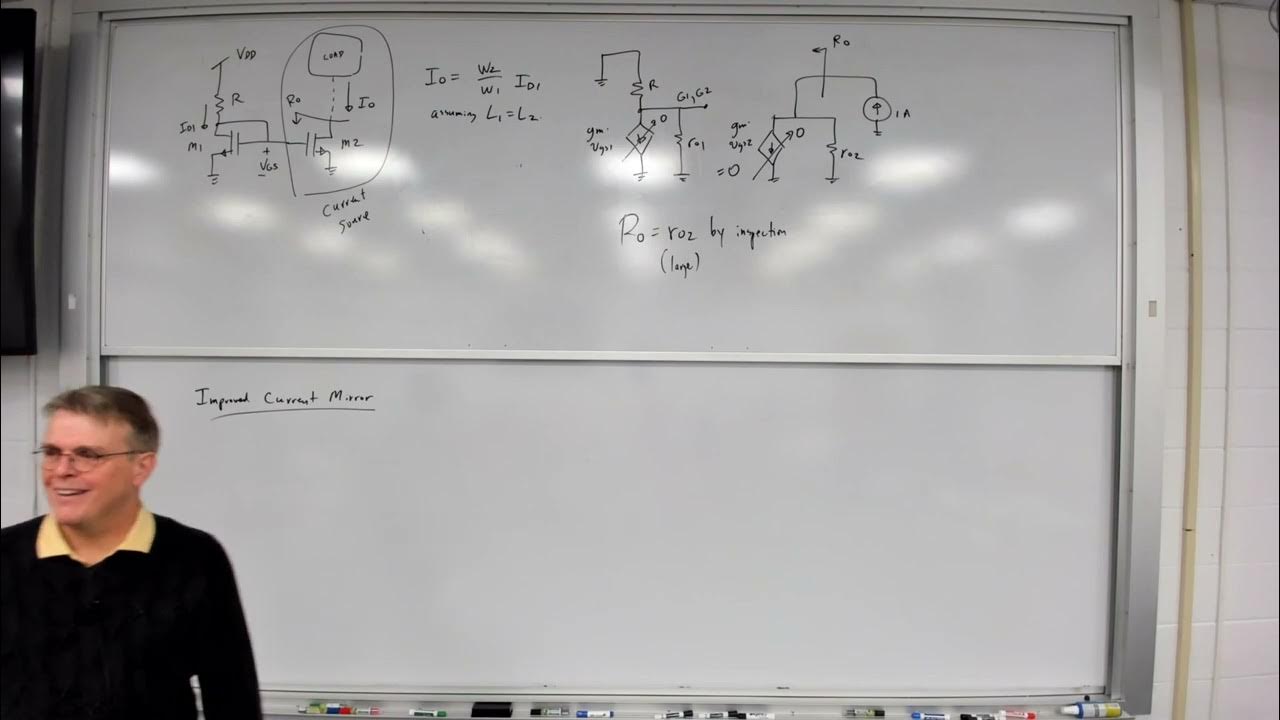 VDD
LOAD
R
Ro
Io
ID1
M1
M2
+
VGS
-
Current
Source
Io = W2/W1 ID1
assuming L1 = L2
R
G1, G2
gm·
vgs1
0
ro1
Ro
1A
gm·
vgs2
0
= 0
ro2
Ro = ro2 by inspection
(large)
Improved Current Mirror